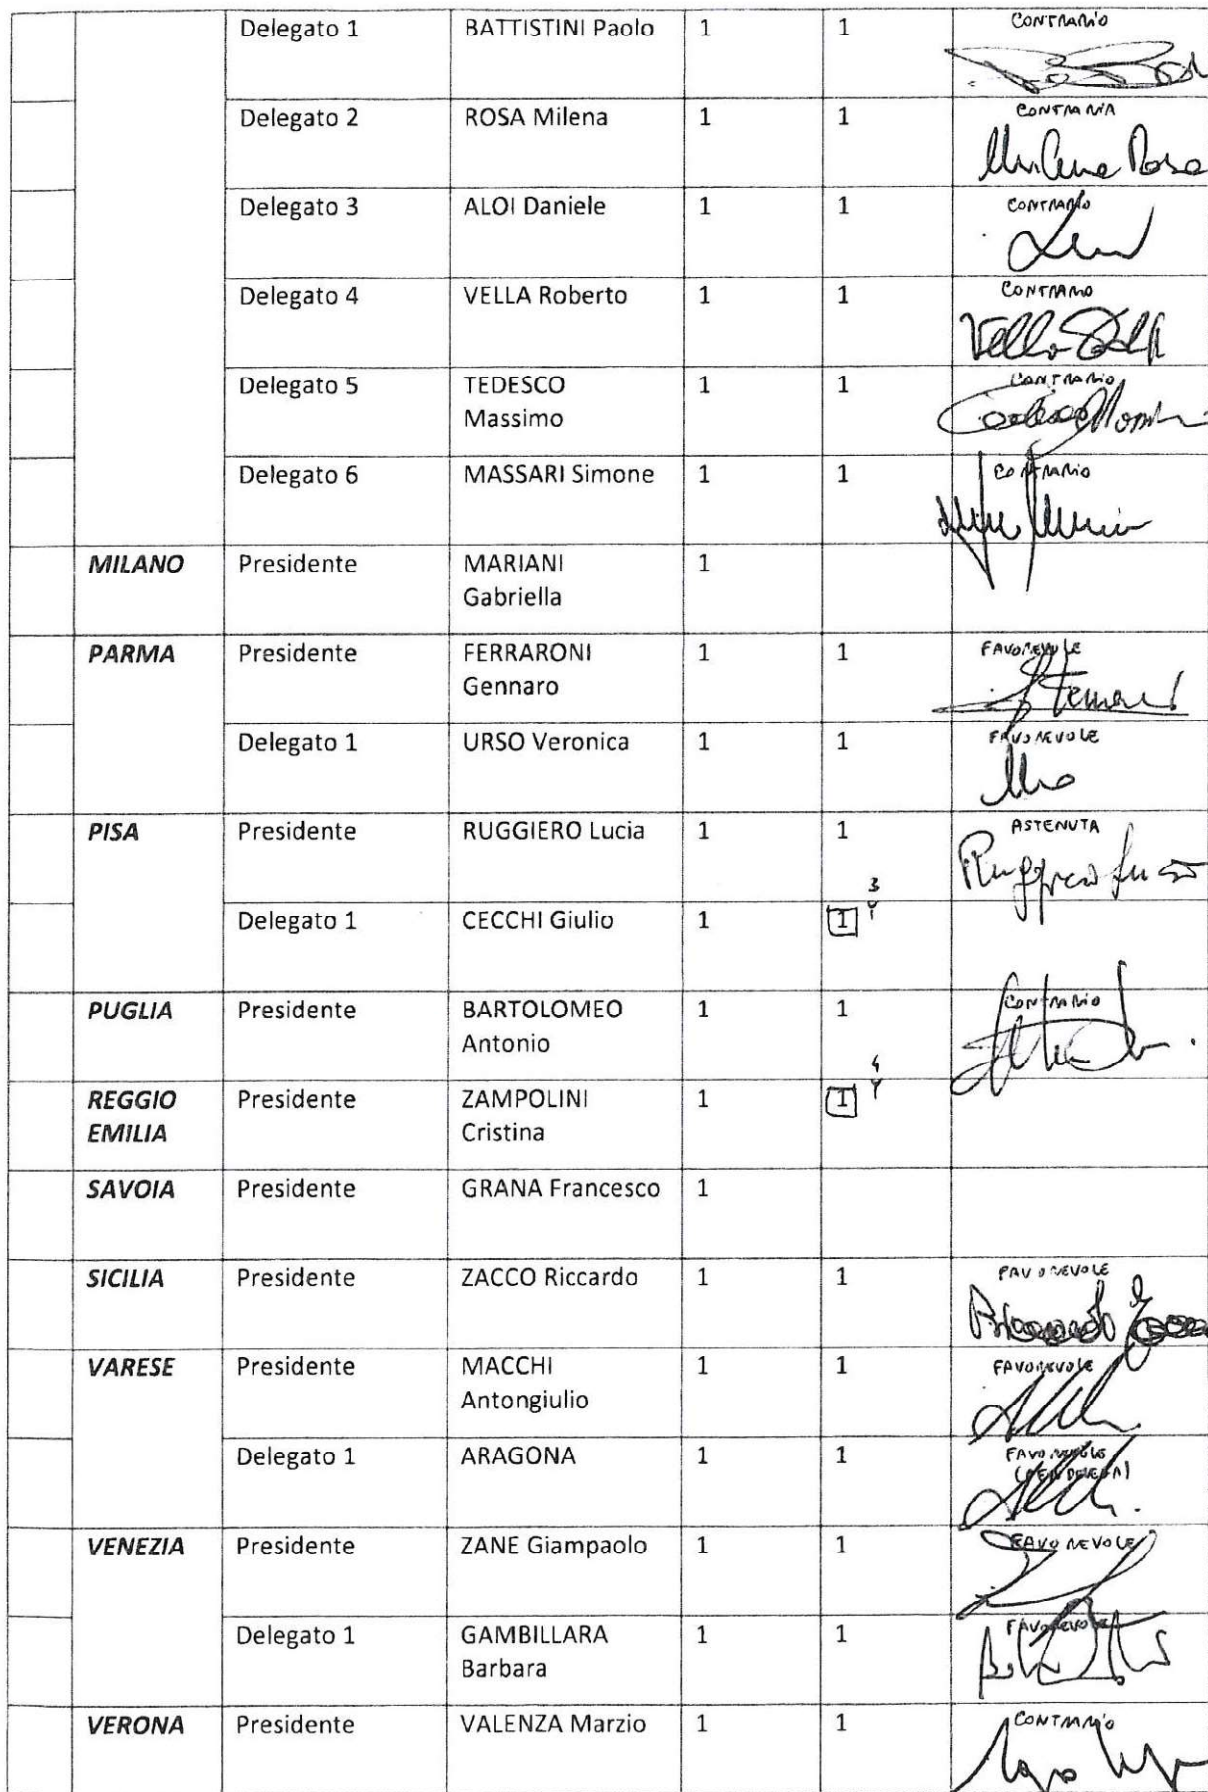 Delegato 1 BATTISTINI Paolo 1 1 CONTRARIO
Delegato 2 ROSA Milena 1 1 CONTRARIA
Milena Rosa
Delegato 3 ALOI Daniele 1 1 CONTRARIO
Delegato 4 VELLA Roberto 1 1 CONTRARIO
Vella
Delegato 5 TEDESCO 1 1 CONTRARIO
Massimo
Delegato 6 MASSARI Simone 1 1 CONTRARIO
MILANO Presidente MARIANI 1
Gabriella
PARMA Presidente FERRARONI 1 1 FAVOREVOLE
Gennaro
Delegato 1 URSO Veronica 1 1 FAVOREVOLE
PISA Presidente RUGGIERO Lucia 1 1 ASTENUTA
Ruggiero Lucia
3
Delegato 1 CECCHI Giulio 1 1
PUGLIA Presidente BARTOLOMEO 1 1 CONTRARIO
Antonio
4
REGGIO Presidente ZAMPOLINI 1 1
EMILIA Cristina
SAVOIA Presidente GRANA Francesco 1
SICILIA Presidente ZACCO Riccardo 1 1 FAVOREVOLE
VARESE Presidente MACCHI 1 1 FAVOREVOLE
Antongiulio
Delegato 1 ARAGONA 1 1 FAVOREVOLE
(PER DELEGA)
VENEZIA Presidente ZANE Giampaolo 1 1 FAVOREVOLE
Delegato 1 GAMBILLARA 1 1 FAVOREVOLE
Barbara
VERONA Presidente VALENZA Marzio 1 1 CONTRARIO